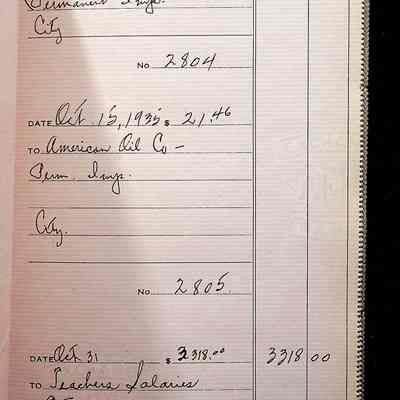 Permanent Imp.
City
No 2804
DATE Oct 15, 1935 $ 21.46
TO American Oil Co -
Perm. Imp.
City.
No 2805.
DATE Oct 31 $ 3318.00 3318 00
TO Teachers Salaries